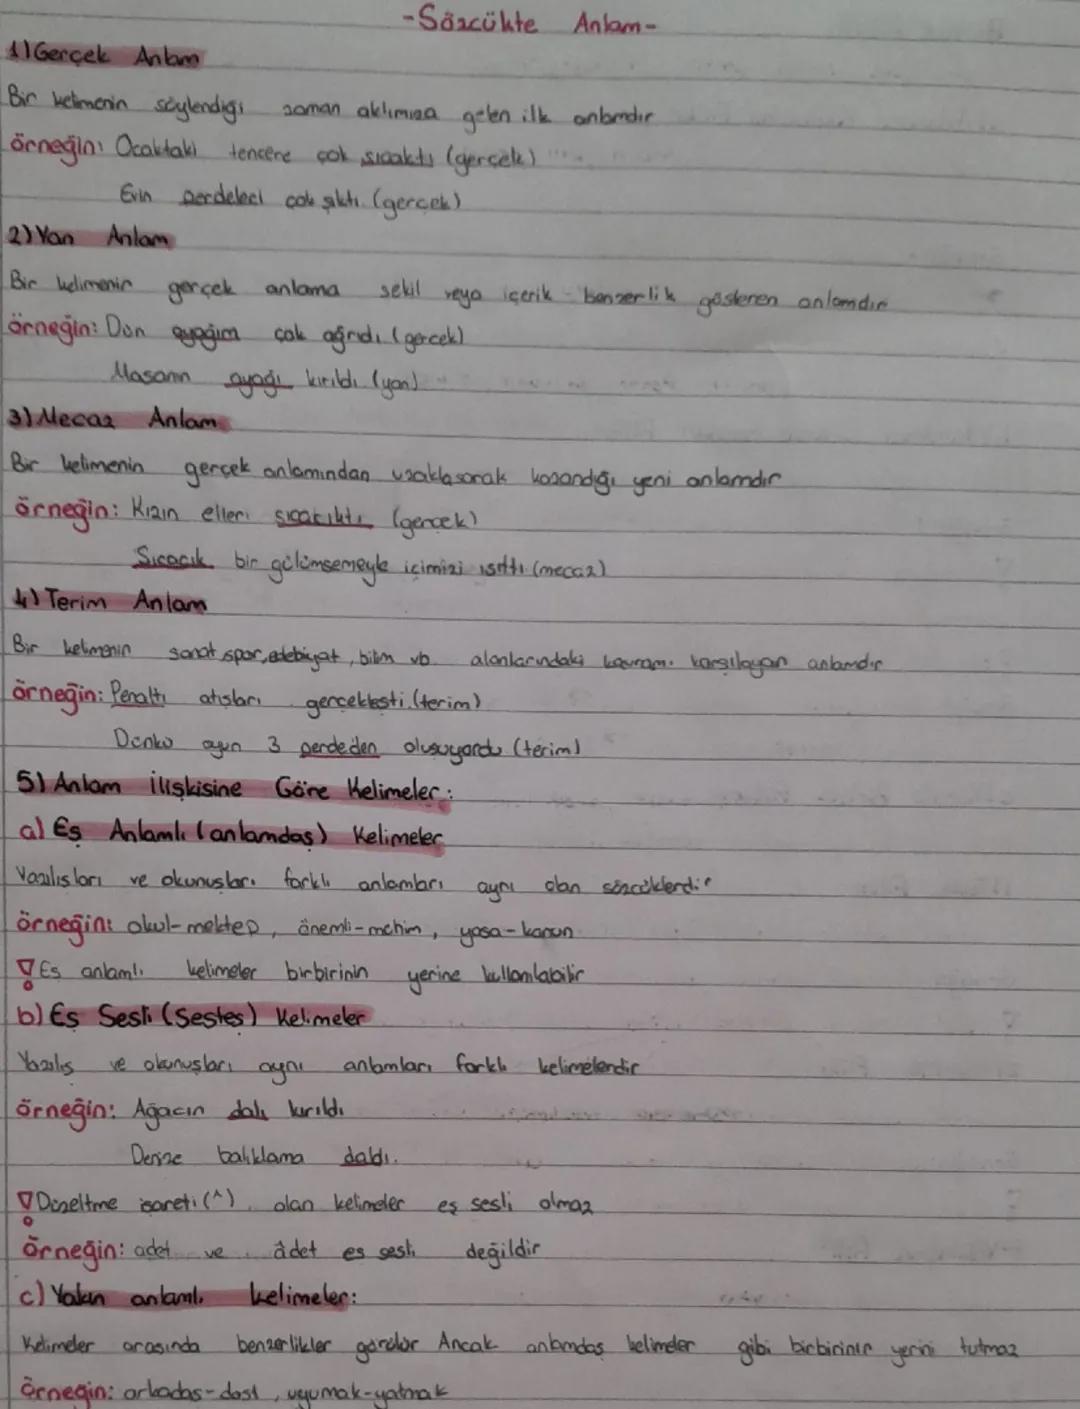 -Sözcükte Anlam-
1) Gerçek Anlam
Bir kelimenin söylendiği zaman aklımıza gelen ilk anlamdır
örneğin: Ocaktaki tencere çok sıcaktı (gerçek)
Evin perdeleri çok şıktı. (gerçek)
2) Yan Anlam
Bir kelimenin gerçek anlama şekil veya içerik benzerlik gösteren anlamdır
örneğin: Dün ayağım çok ağrıdı (gerçek)
Masanın ayağı kırıldı (yan)
3) Mecaz Anlam
Bir kelimenin gerçek anlamından uzaklaşarak kazandığı yeni anlamdır
örneğin: Kızın elleri sıcacıktı (gerçek)
Sıcacık bir gülümsemeyle içimizi ısıttı (mecaz)
4) Terim Anlam
Bir kelimenin sanat, spor, edebiyat, bilim vb. alanlarındaki kavramı karşılayan anlamdır
örneğin: Penaltı atışları gerçekleşti. (terim)
Dünkü oyun 3 perdeden oluşuyordu (terim)
5) Anlam İlişkisine Göre Kelimeler:
a) Eş Anlamlı (anlamdaş) Kelimeler
Yazılışları ve okunuşları farklı anlamları aynı olan sözcüklerdir
örneğin: okul-mektep, önemli-mühim, yasa-kanun
Eş anlamlı kelimeler birbirinin yerine kullanılabilir
b) Eş Sesli (Sesteş) Kelimeler
Yazılış ve okunuşları aynı anlamları farklı kelimelerdir
örneğin: Ağacın dalı kırıldı
Denize balıklama daldı.
Düzeltme işareti (^) olan kelimeler eş sesli olmaz
örneğin: adet ve âdet eş sesli değildir
c) Yakın anlamlı kelimeler:
Kelimeler arasında benzerlikler görülür Ancak anlamdaş kelimeler gibi birbirinin yerini tutmaz
örneğin: arkadaş-dost, uyumak-yatmak